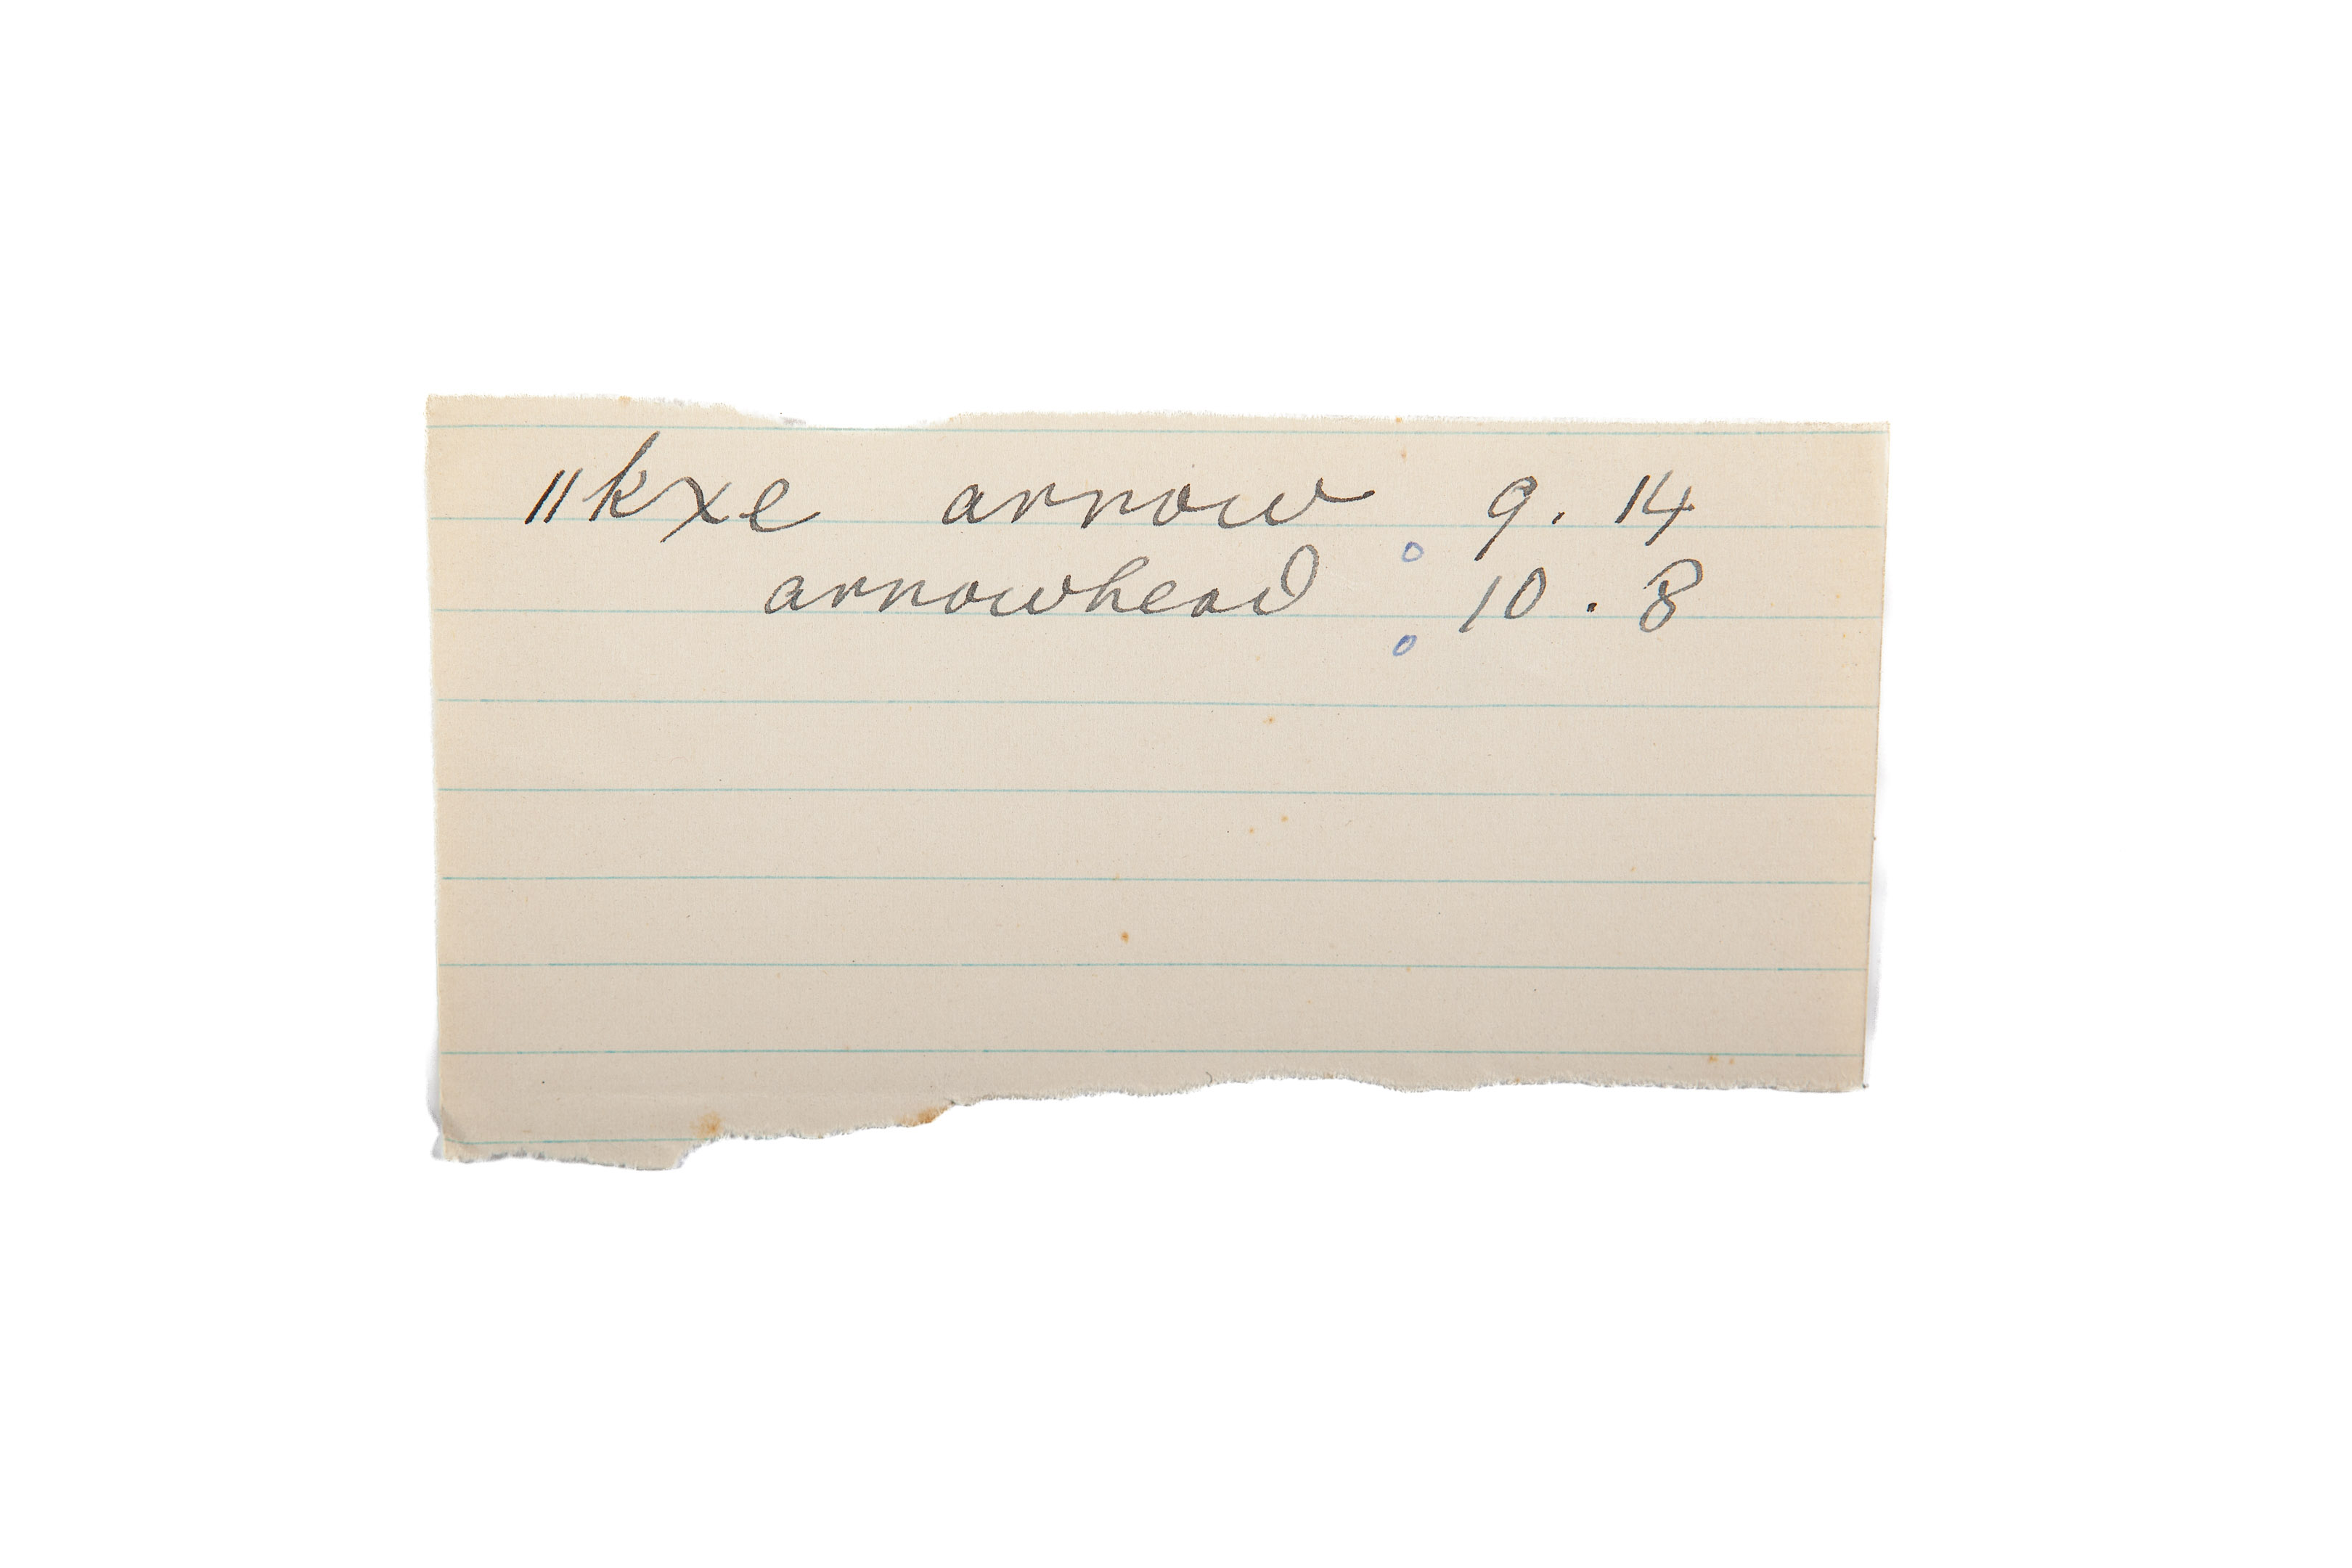 ǁkxe arrow 9. 14
arrowhead 10. 8